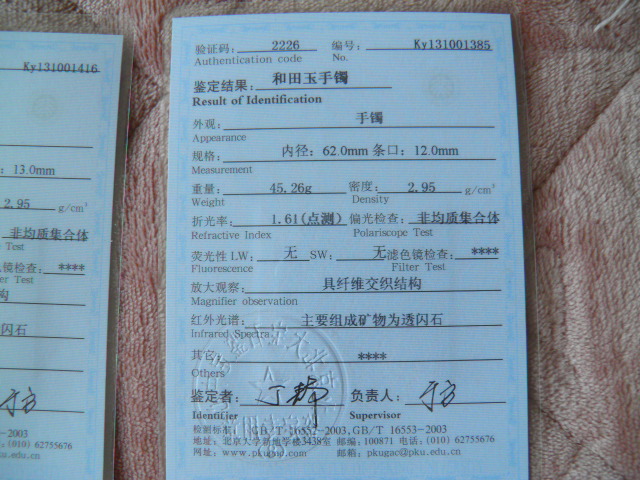 Ky131001416
13.0mm
2.95 g/cm³
非均质集合体
Test
色镜检查: ****
Test
构
闪石
-2003
(010) 62755676
.edu.cn
验证码: 2226 编号: Ky131001385
Authentication code No.
鉴定结果: 和田玉手镯
Result of Identification
外观: 手镯
Appearance
规格: 内径: 62.0mm 条口: 12.0mm
Measurement
重量: 45.26g 密度: 2.95 g/cm³
Weight Density
折光率: 1.61(点测) 偏光检查: 非均质集合体
Refractive Index Polariscope Test
荧光性 LW: 无 SW: 无 滤色镜检查: ****
Fluorescence Filter Test
放大观察: 具纤维交织结构
Magnifier observation
红外光谱: 主要组成矿物为透闪石
Infrared Spectra
其它: ****
Others
鉴定者: 负责人:
Identifier Supervisor
检测标准: GB/T 16552-2003,GB/T 16553-2003
地址: 北京大学新地学楼3438室 邮编: 100871 电话: (010) 62755676
网址: www.pkugac.com 邮箱: pkugac@pku.edu.cn